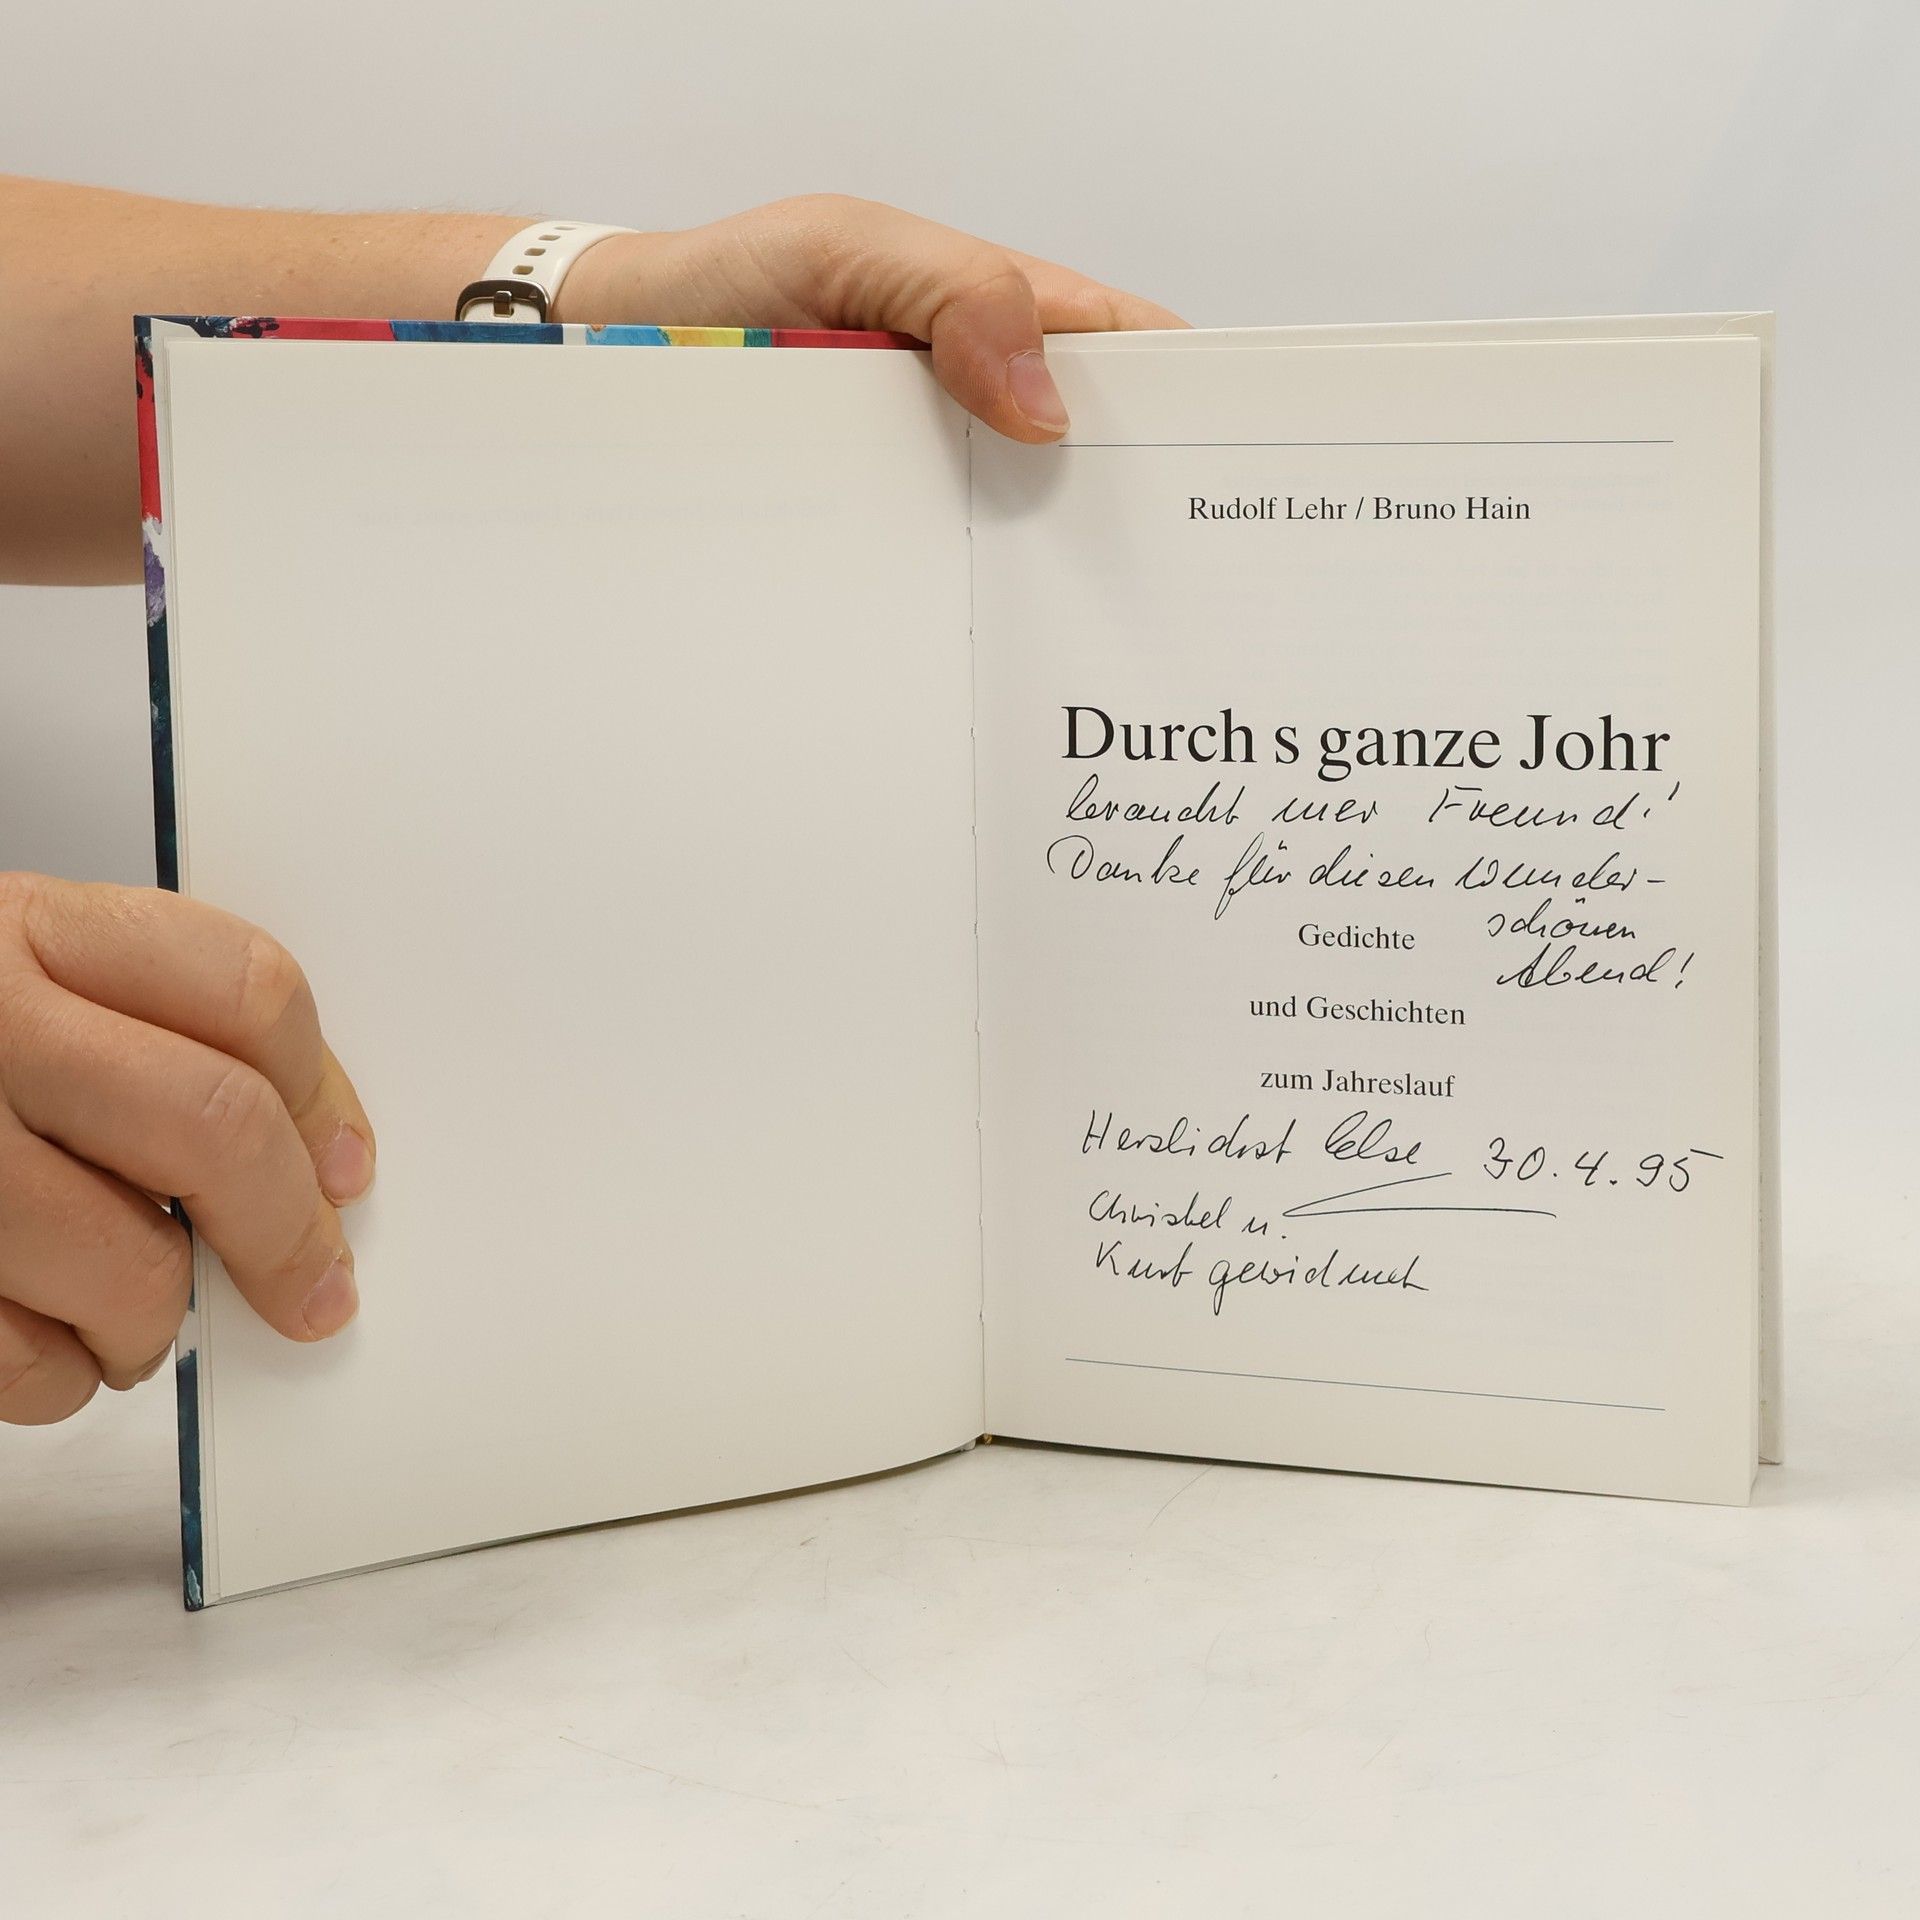 Rudolf Lehr / Bruno Hain
Durch s ganze Johr
braucht mer Freund!
Danke für diesen wunder-
schönen
Gedichte
Abend!
und Geschichten
zum Jahreslauf
Herzlichst
30.4.95
Christel u.
Kurt gewidmet